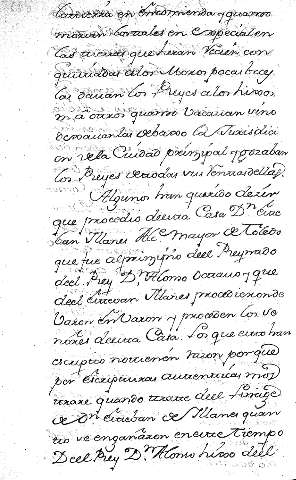 en Encomienda y quanto
en especial en
las tierras que heran recien con
quistadas a los Moros pocas veces
las davan los Reyes a los hixos
m a otros quanto vacavan
devaxo la Jurisdici
on de la Ciudad prinzipal y gozaban
los Reyes de todas sus
Algunos han querido dezir
que procedio de esta Casa Dn. Este
ban Yllanes Alc. mayor de Toledo
que fue al prinzipio del Reynado
del Rey Dn. Alonso Octavo y que
del Estevan Yllanes procedieron de
Varon en Varon y proceden los se
ñores de esta Casa. Los que esto han
escripto no tienen razon porque
por Escripturas autenticas mos
trare quando trate del Linage
de Dn. Esteban de Yllanes quan
to se engañaron en este tiempo
Del Rey Dn. Alonso hixo del